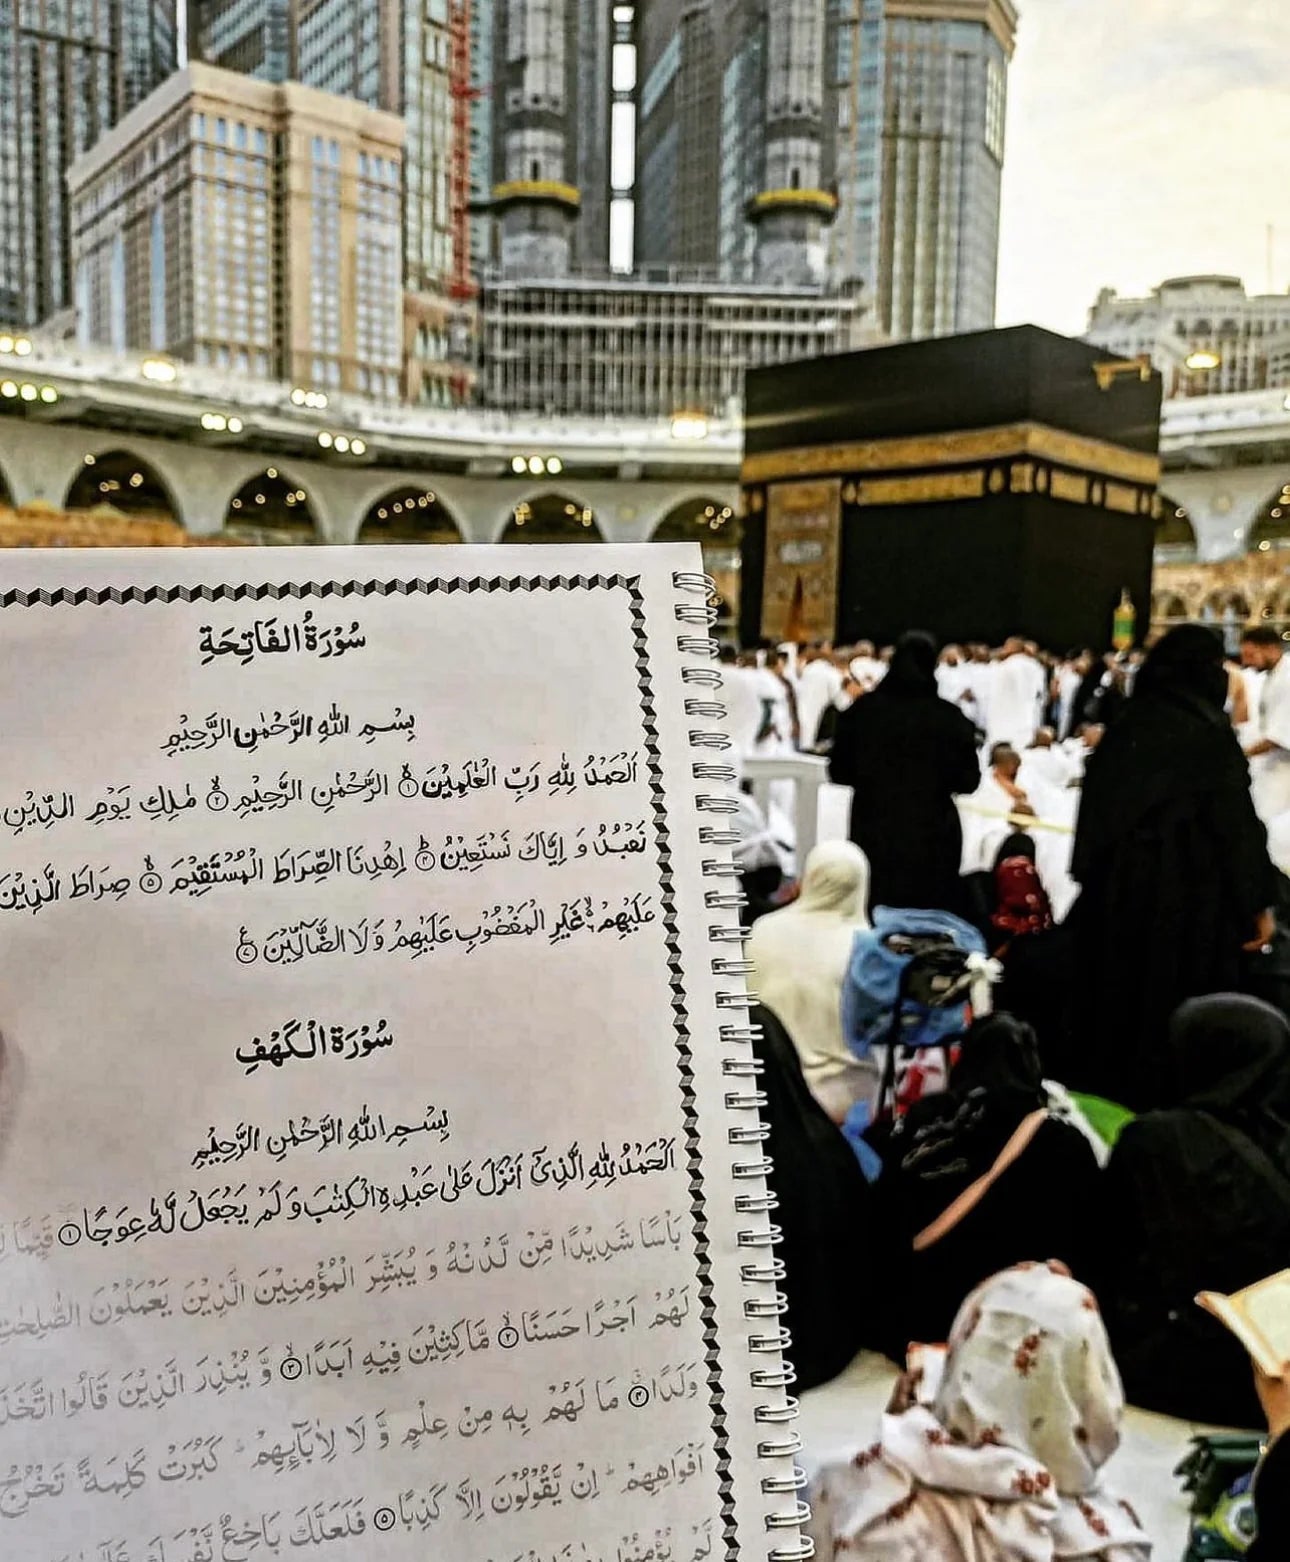 سُوْرَةُ الفَاتِحَةِ
بِسْمِ اللهِ الرَّحْمٰنِ الرَّحِيْمِ
اَلْحَمْدُ لِلّٰهِ رَبِّ الْعٰلَمِيْنَ ۝١ الرَّحْمٰنِ الرَّحِيْمِ ۝٢ مٰلِكِ يَوْمِ الدِّيْنِ
نَعْبُدُ وَ اِيَّاكَ نَسْتَعِيْنُ ۝٤ اِهْدِنَا الصِّرَاطَ الْمُسْتَقِيْمَ ۝٥ صِرَاطَ الَّذِيْنَ
عَلَيْهِمْ ۙ۬ غَيْرِ الْمَغْضُوْبِ عَلَيْهِمْ وَ لَا الضَّآلِّيْنَ ۝٧
سُوْرَةُ الْكَهْفِ
بِسْمِ اللهِ الرَّحْمٰنِ الرَّحِيْمِ
اَلْحَمْدُ لِلّٰهِ الَّذِيْۤ اَنْزَلَ عَلٰى عَبْدِهِ الْكِتٰبَ وَ لَمْ يَجْعَلْ لَّهٗ عِوَجًا ۝١ قَيِّمًا
بَاْسًا شَدِيْدًا مِّنْ لَّدُنْهُ وَ يُبَشِّرَ الْمُؤْمِنِيْنَ الَّذِيْنَ يَعْمَلُوْنَ الصّٰلِحٰتِ
لَهُمْ اَجْرًا حَسَنًا ۝٢ مَّاكِثِيْنَ فِيْهِ اَبَدًا ۝٣ وَّ يُنْذِرَ الَّذِيْنَ قَالُوا اتَّخَذَ
وَلَدًا ۝٤ مَا لَهُمْ بِهٖ مِنْ عِلْمٍ وَّ لَا لِاٰبَآىِٕهِمْ ؕ كَبُرَتْ كَلِمَةً تَخْرُجُ
اَفْوَاهِهِمْ ؕ اِنْ يَّقُوْلُوْنَ اِلَّا كَذِبًا ۝٥ فَلَعَلَّكَ بَاخِعٌ نَّفْسَكَ
لَّمْ يُؤْمِنُوْا